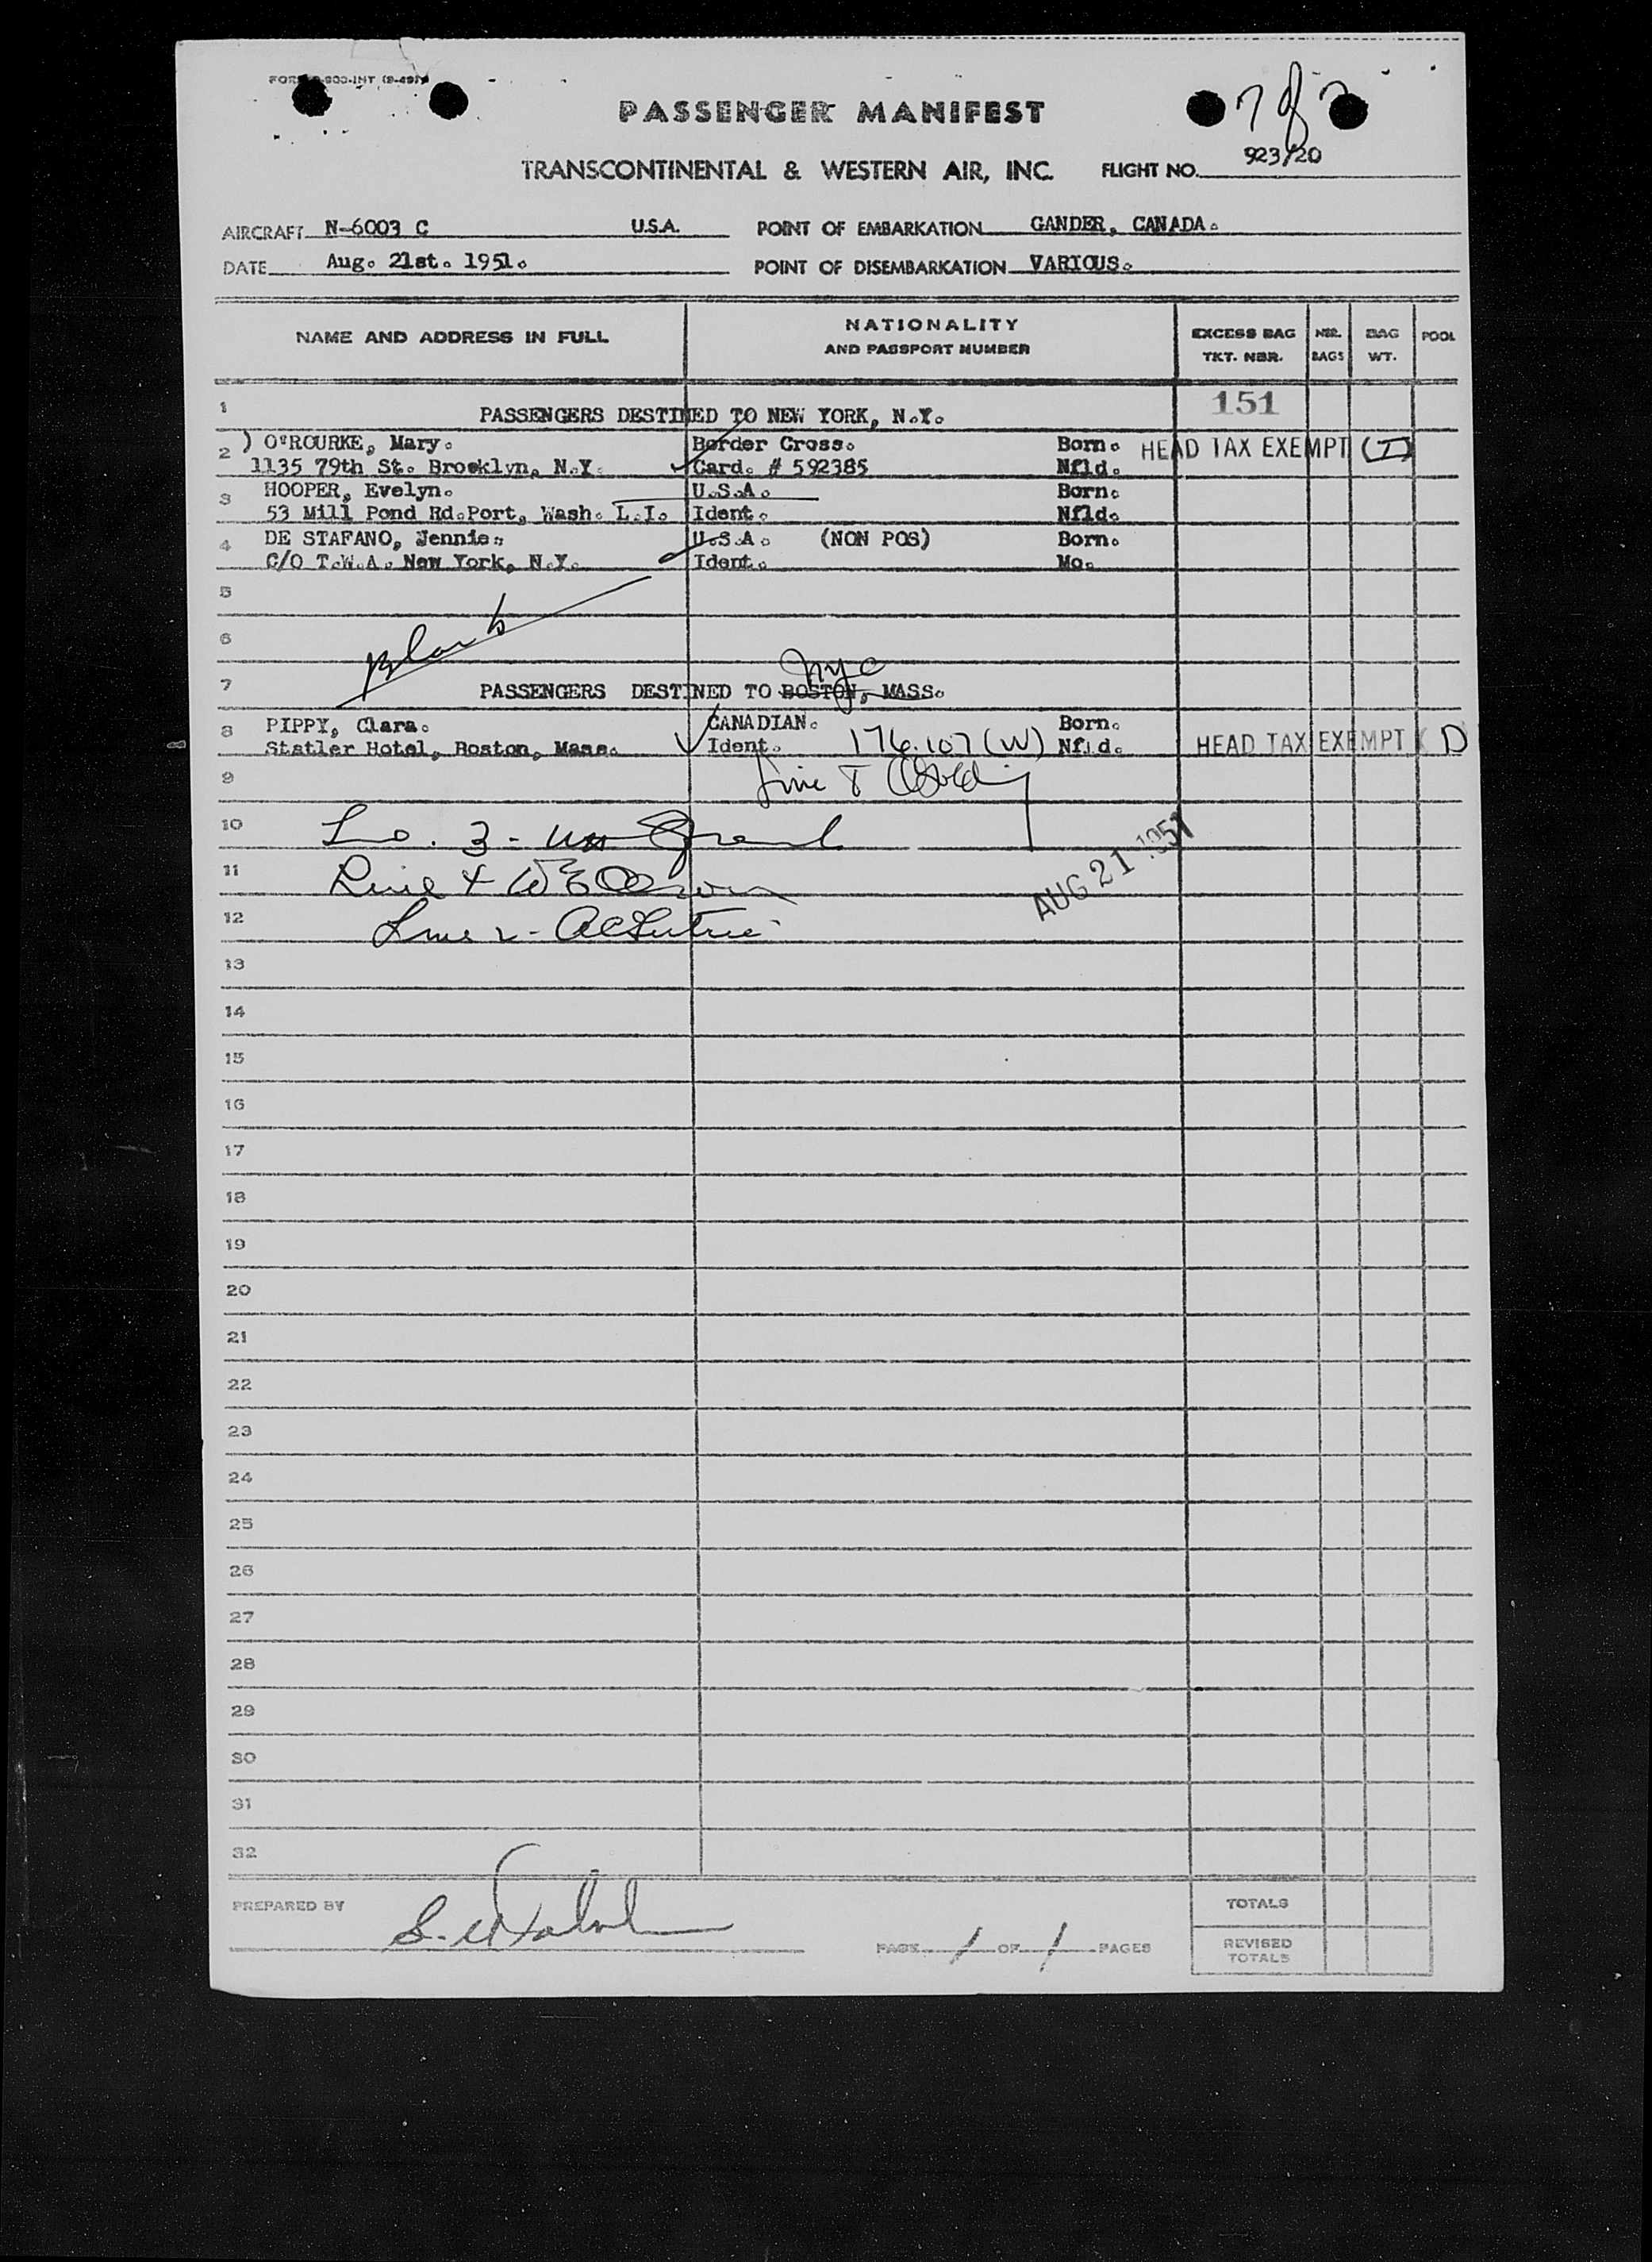 7 of 7
PASSENGER MANIFEST
TRANSCONTINENTAL & WESTERN AIR, INC. FLIGHT NO. 923/20
AIRCRAFT N-6003 C U.S.A. POINT OF EMBARKATION GANDER, CANADA.
DATE Aug. 21st. 1951. POINT OF DISEMBARKATION VARIOUS.
NAME AND ADDRESS IN FULL NATIONALITY AND PASSPORT NUMBER EXCESS BAG TKT. NBR. NBR. BAGS BAG WT. POOL
1 PASSENGERS DESTINED TO NEW YORK, N.Y. 151
2 ) O'ROURKE, Mary. Border Cross. Born. HEAD TAX EXEMPT (I)
1135 79th St. Brooklyn, N.Y. Card. # 592385 Nfld.
3 HOOPER, Evelyn. U.S.A. Born.
53 Mill Pond Rd.Port, Wash. L.I. Ident. Nfld.
4 DE STAFANO, Jennie. U.S.A. (NON POS) Born.
C/O T.W.A. New York, N.Y. Ident. Mo.
5
6 Blank
nyc
7 PASSENGERS DESTINED TO BOSTON, MASS.
8 PIPPY, Clara. CANADIAN. Born.
Statler Hotel, Boston, Mass. Ident. 176.107 (W) Nfld. HEAD TAX EXEMPT D
9
10
11 AUG 21 1951
12
13
14
15
16
17
18
19
20
21
22
23
24
25
26
27
28
29
30
31
32
PREPARED BY PAGE 1 OF 1 PAGES
TOTALS
REVISED TOTALS